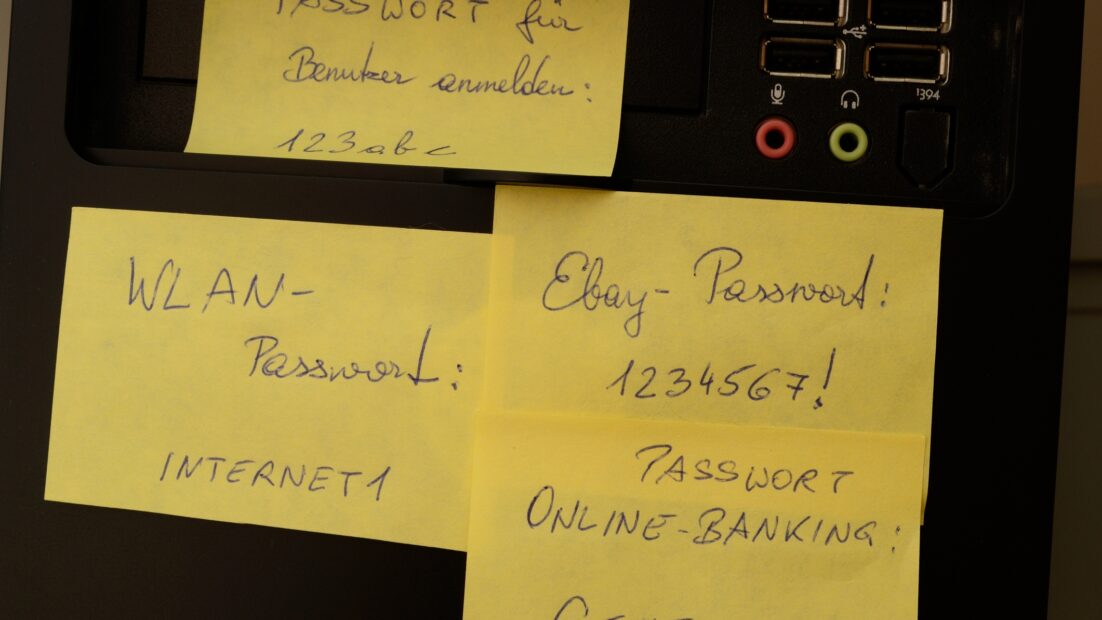 PASSWORT für
Benutzer anmelden:
123abc
1394
WLAN-
Passwort:
INTERNET1
Ebay-Passwort:
1234567!
PASSWORT
ONLINE-BANKING: